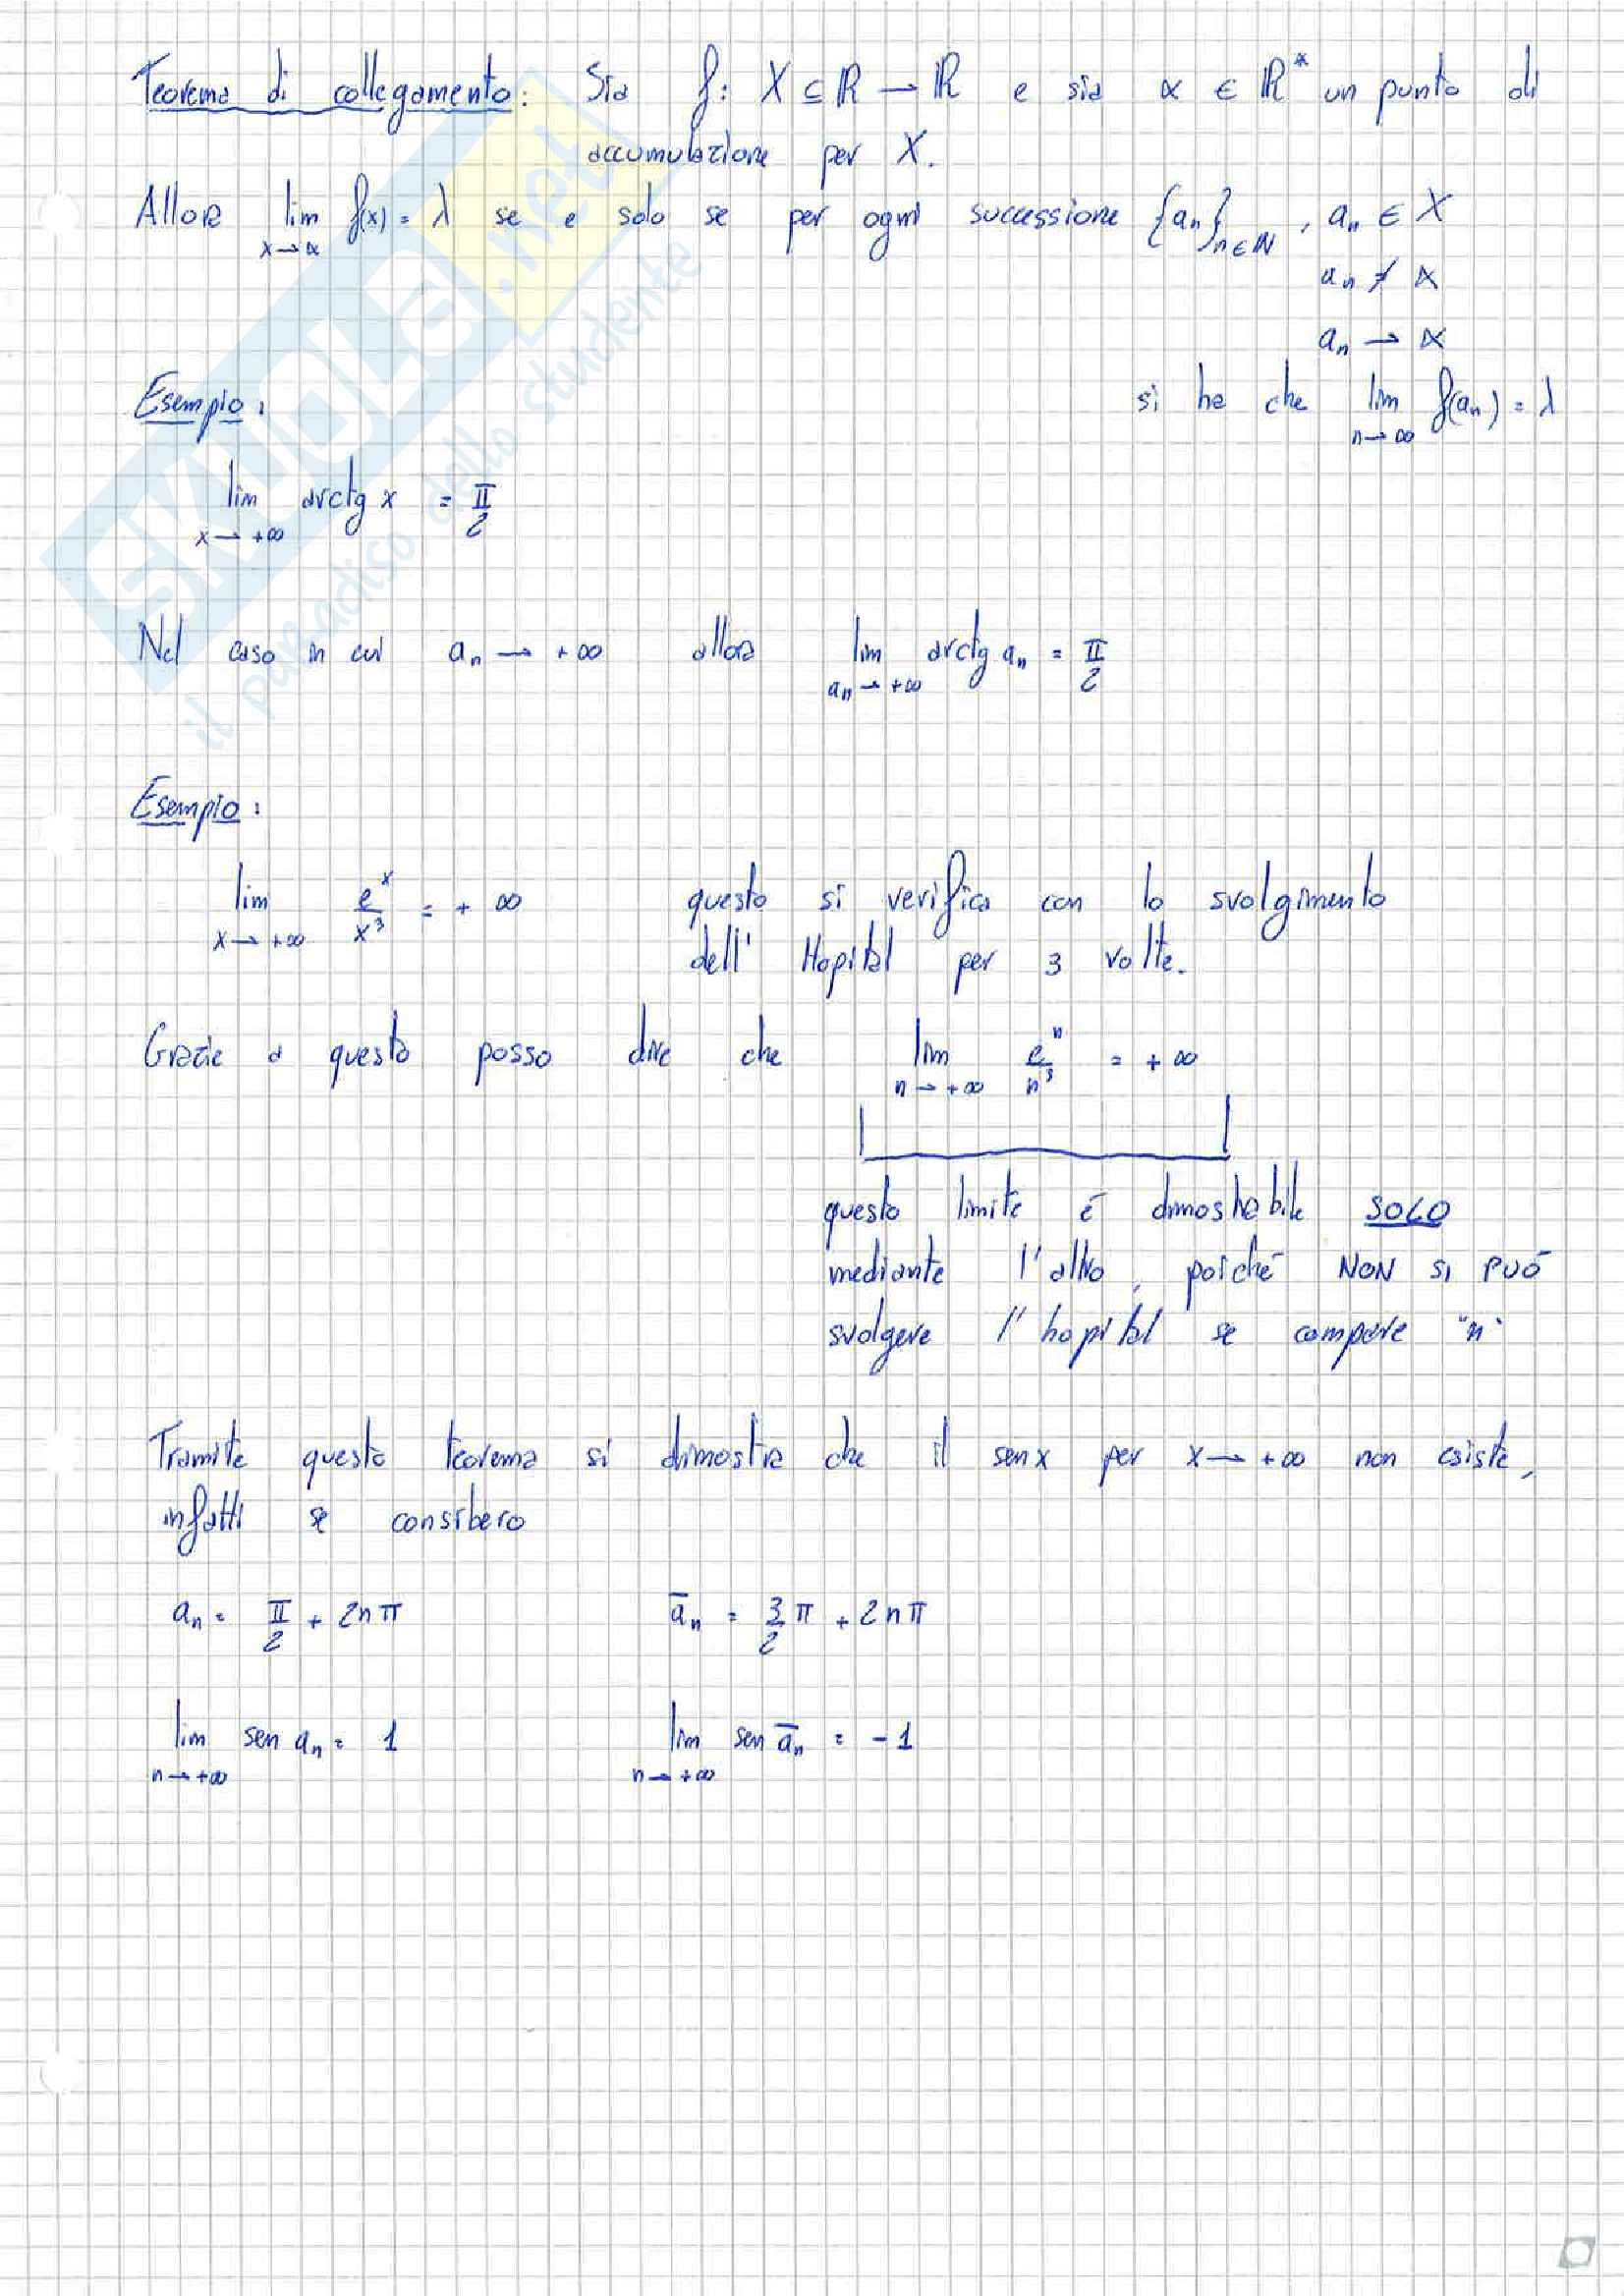 Teorema di collegamento: Sia f: X ⊆ ℝ → ℝ e sia α ∈ ℝ* un punto di
accumulazione per X.
Allora lim f(x) = λ se e solo se per ogni successione {an}n∈ℕ , an ∈ X
x→α
an ≠ α
an → α
Esempio:
si ha che lim f(an) = λ
n→∞
lim arctg x = π/2
x→+∞
Nel caso in cui an → +∞ allora lim arctg an = π/2
an→+∞
Esempio:
lim e^x/x^3 = +∞ questo si verifica con lo svolgimento
x→+∞
dell' Hopital per 3 volte.
Grazie a questo posso dire che lim e^n/n^3 = +∞
n→+∞
questo limite è dimostrabile SOLO
mediante l'altro, poiché NON SI PUÒ
svolgere l'hopital se compare "n"
Tramite questo teorema si dimostra che il senx per x→+∞ non esiste,
infatti se considero
an = π/2 + 2nπ    a̅n = 3/2 π + 2nπ
lim sen an = 1    lim sen a̅n = -1
n→+∞    n→+∞
SKUOLA.net
il paradiso dello studente